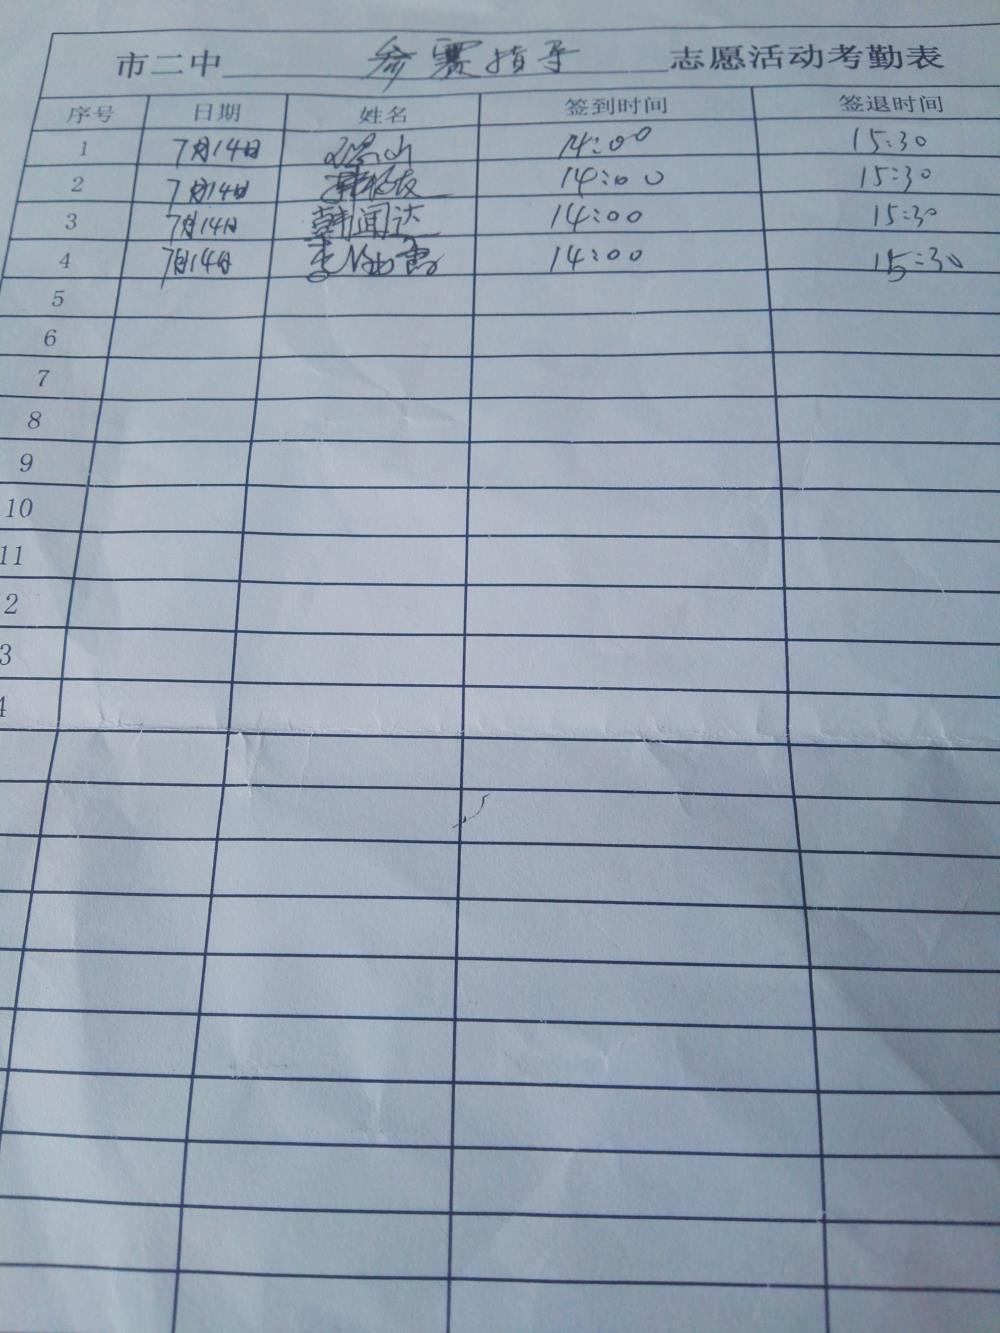 市二中 参赛指导 志愿活动考勤表
序号 日期 姓名 签到时间 签退时间
1 7月14日 14:00 15:30
2 7月14日 14:00 15:30
3 7月14日 韩闻达 14:00 15:30
4 7月14日 李 14:00 15:30
5
6
7
8
9
10
11
2
3
4